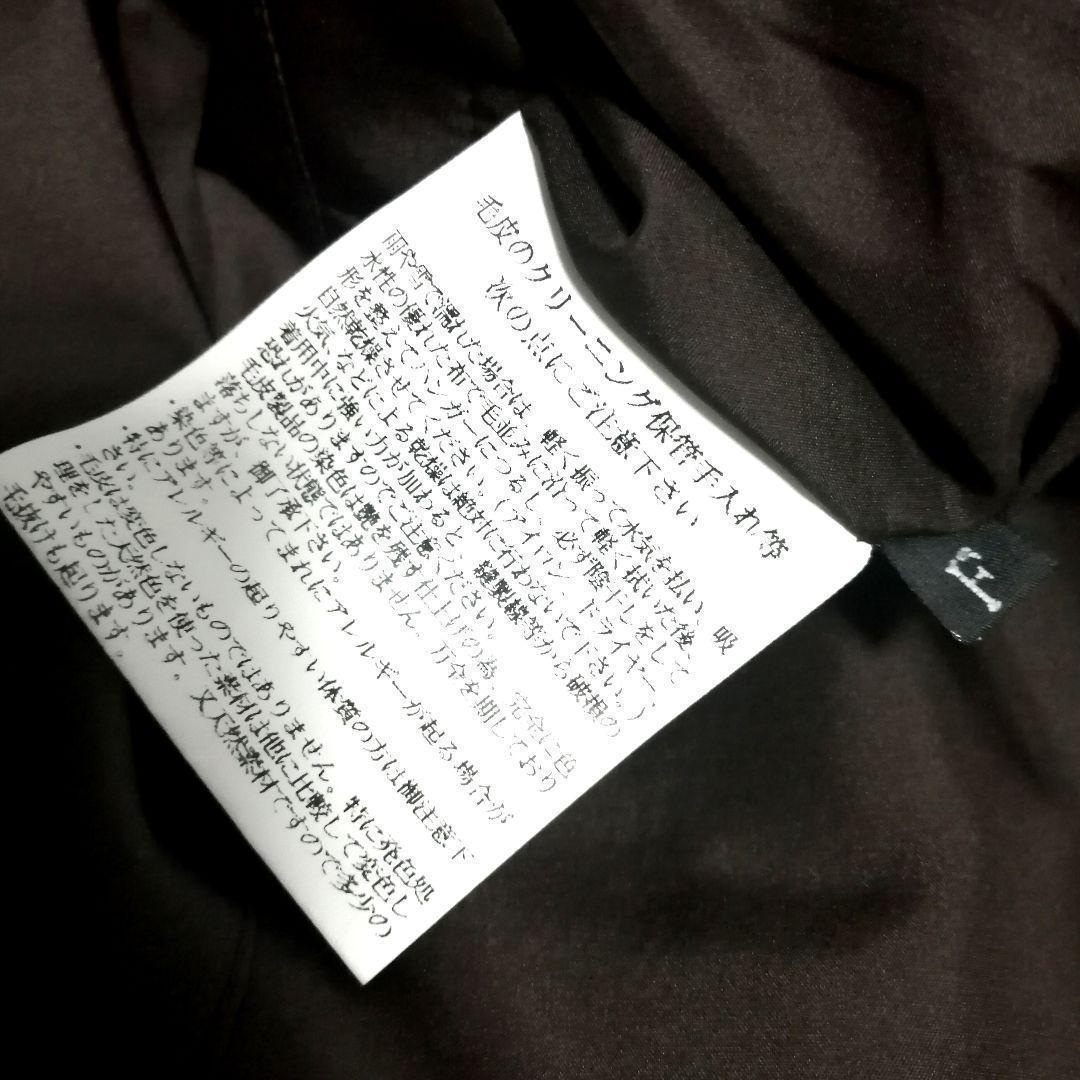 毛皮のクリーニング保管手入れ等
次の点にご注意下さい
雨や雪で濡れた場合は、軽く振って水気を払い、吸
水性の優れた布で毛並みに沿って軽く拭いた後で
形を整えてハンガーにつるし、必ず陰干しをして
自然乾燥させてください。(アイロン、ドライヤー、
火気、などによる乾燥は絶対に行わないで下さい。)
着用中に強い力が加わると、縫製線等から破損の
恐れがありますのでご注意ください。
毛皮製品の染色は艶を残す仕上げの為、完全に色
落ちしない状態ではありません。万全を期しており
ますが、御了承下さい。
・染色等によってまれにアレルギーが起る場合が
あります。
・特にアレルギーの起りやすい体質の方は御注意下
さい。
・毛皮は変色しないものではありません。特に発色処
理をした天然色を使った素材は他に比較して変色し
やすいものがあります。又天然素材ですので多少の
毛抜けも起ります。